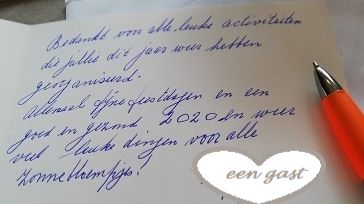 Bedankt voor alle leuke activiteiten
die jullie dit jaar weer hebben
georganiseerd.
Allemaal fijne feestdagen en een
goed en gezond 2020 en weer
veel leuke dingen voor alle
Zonnebloempjes!
een gast